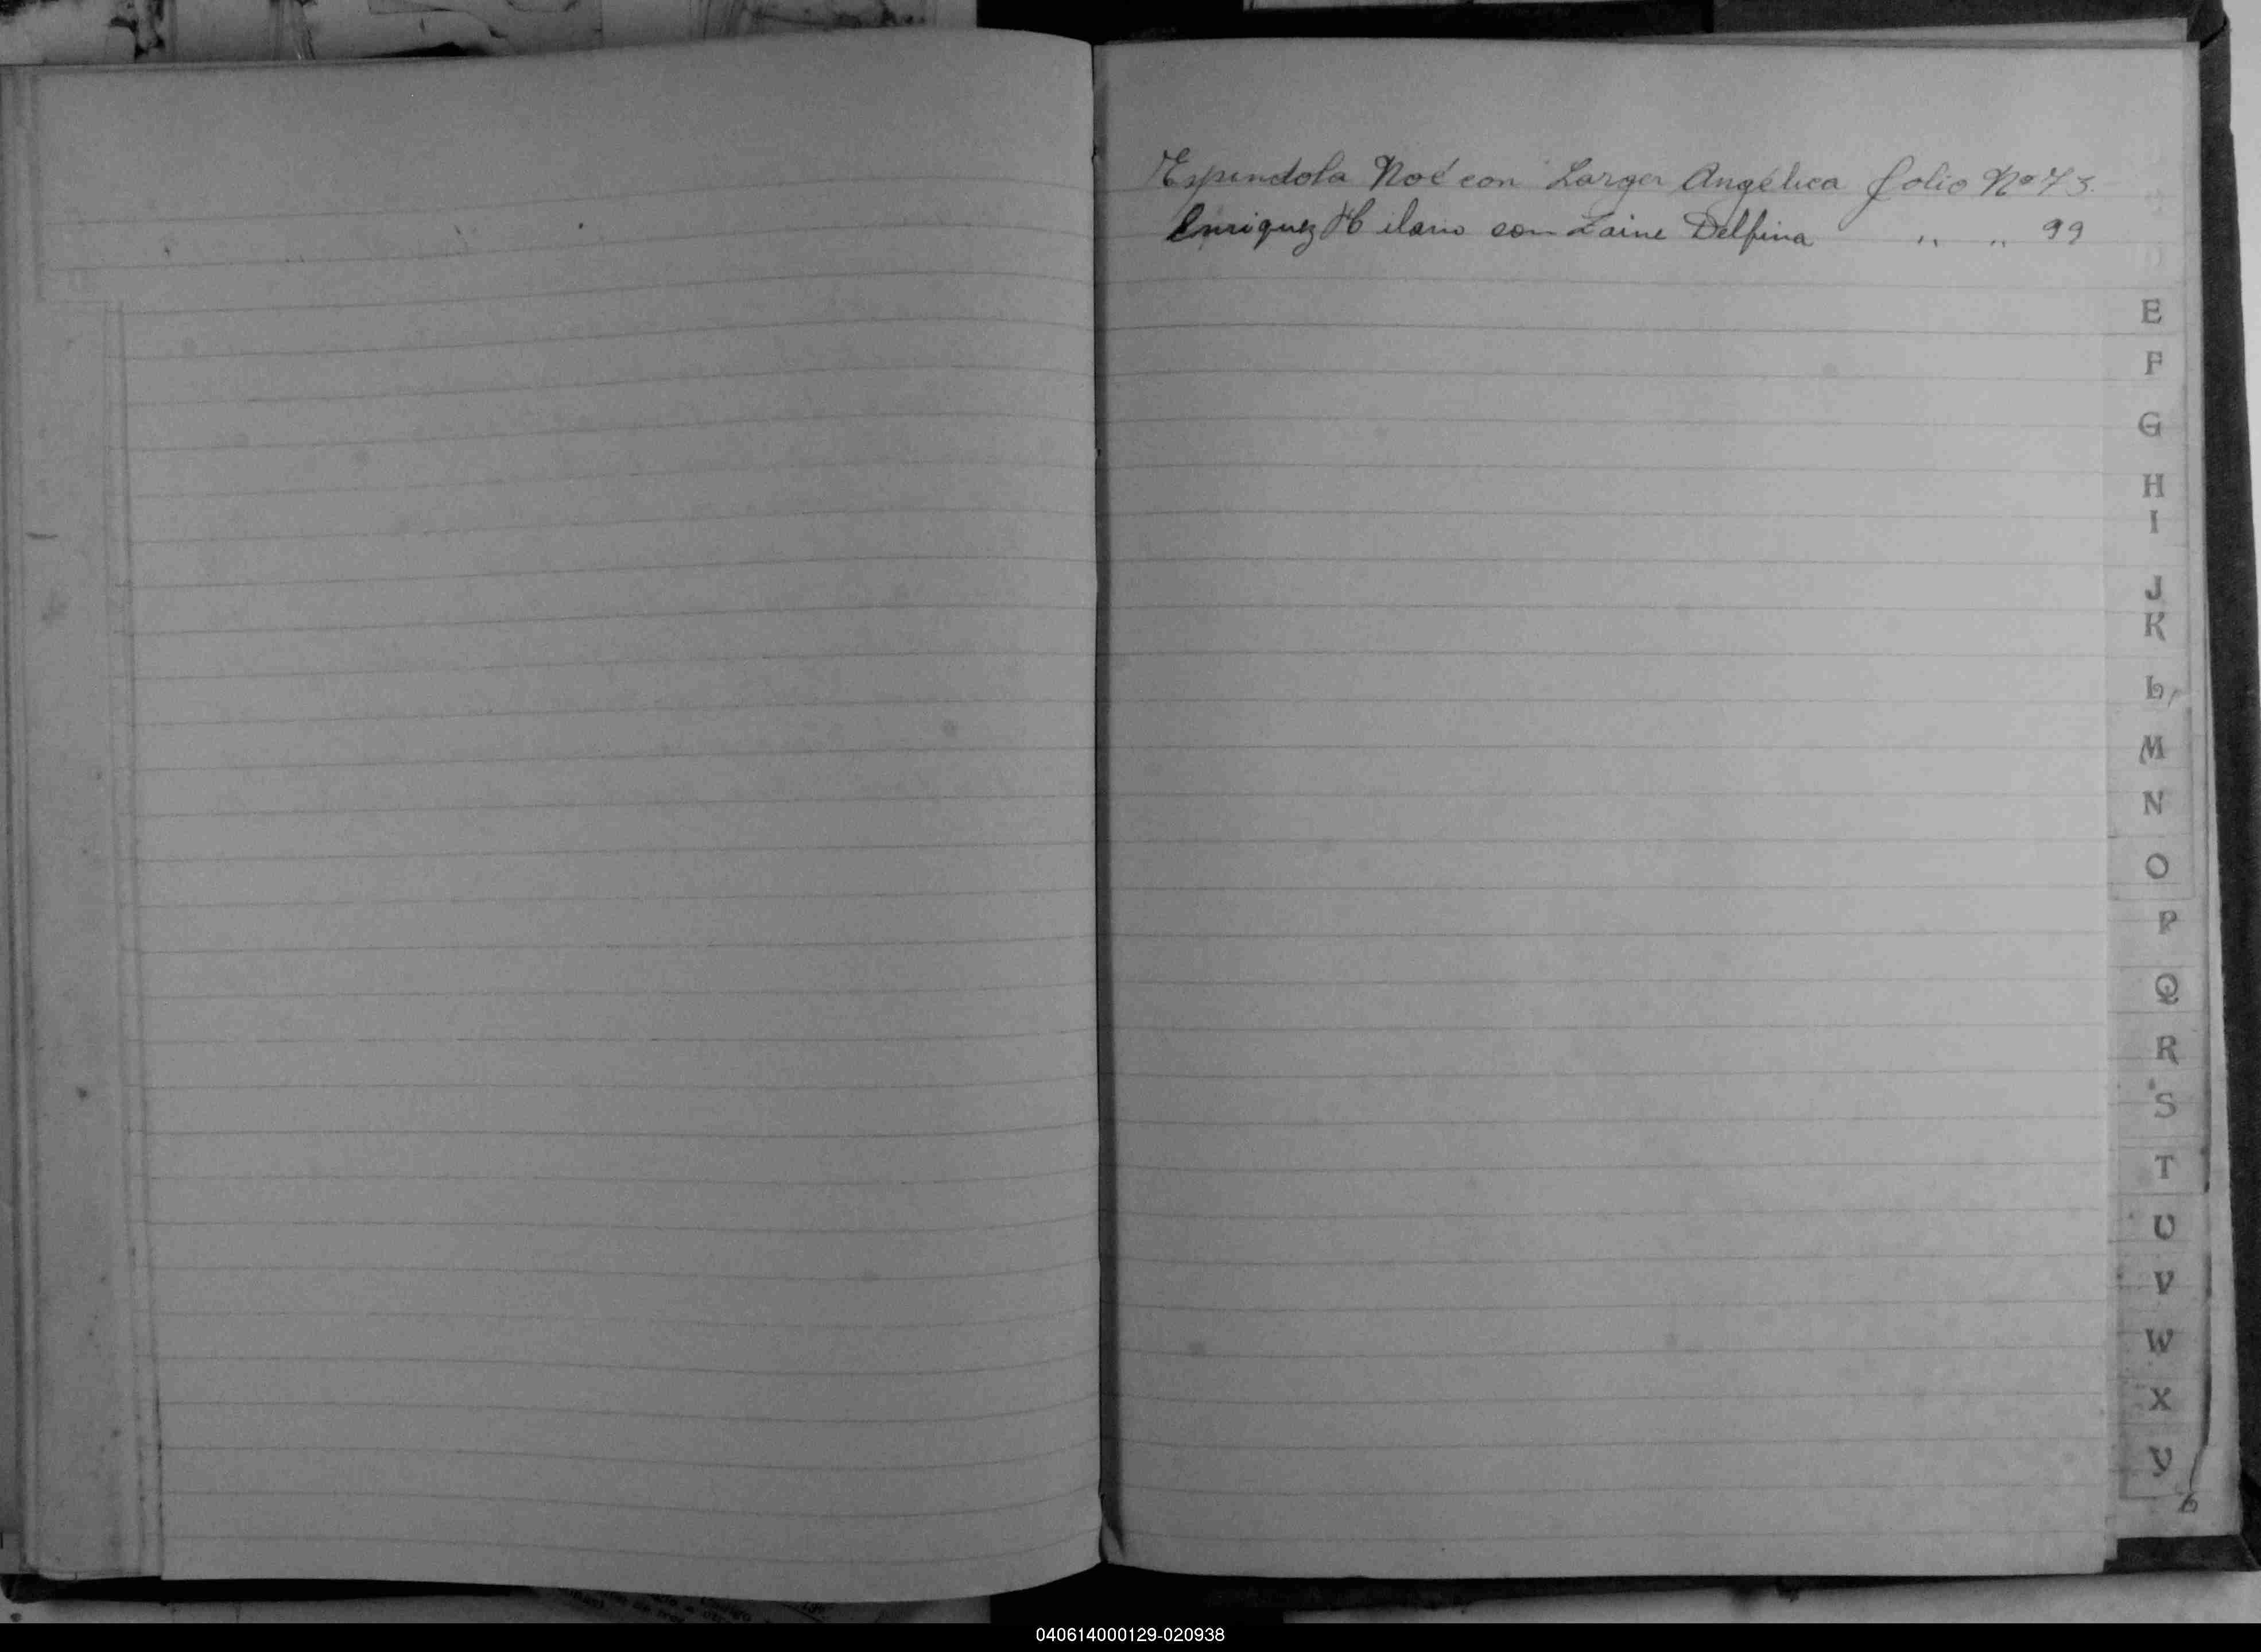 Espindola Noé con Larger Angélica folio Nº 73.
Enriquez Hilario con Zaine Delfina " " 99
E
F
G
H
I
J
K
L
M
N
O
P
Q
R
S
T
U
V
W
X
Y
040614000129-020938